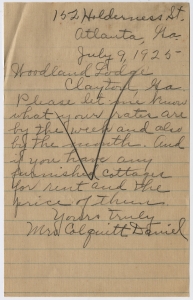 152 Holderness St.
Atlanta, Ga.
July 9, 1925
Woodland Lodge
Clayton, Ga
Please let me know
what your rates are
by the week and also
by the month. And
if you have any
furnished cottages
for rent and the
price of them.
Yours truly
Mrs Colquitt Daniel